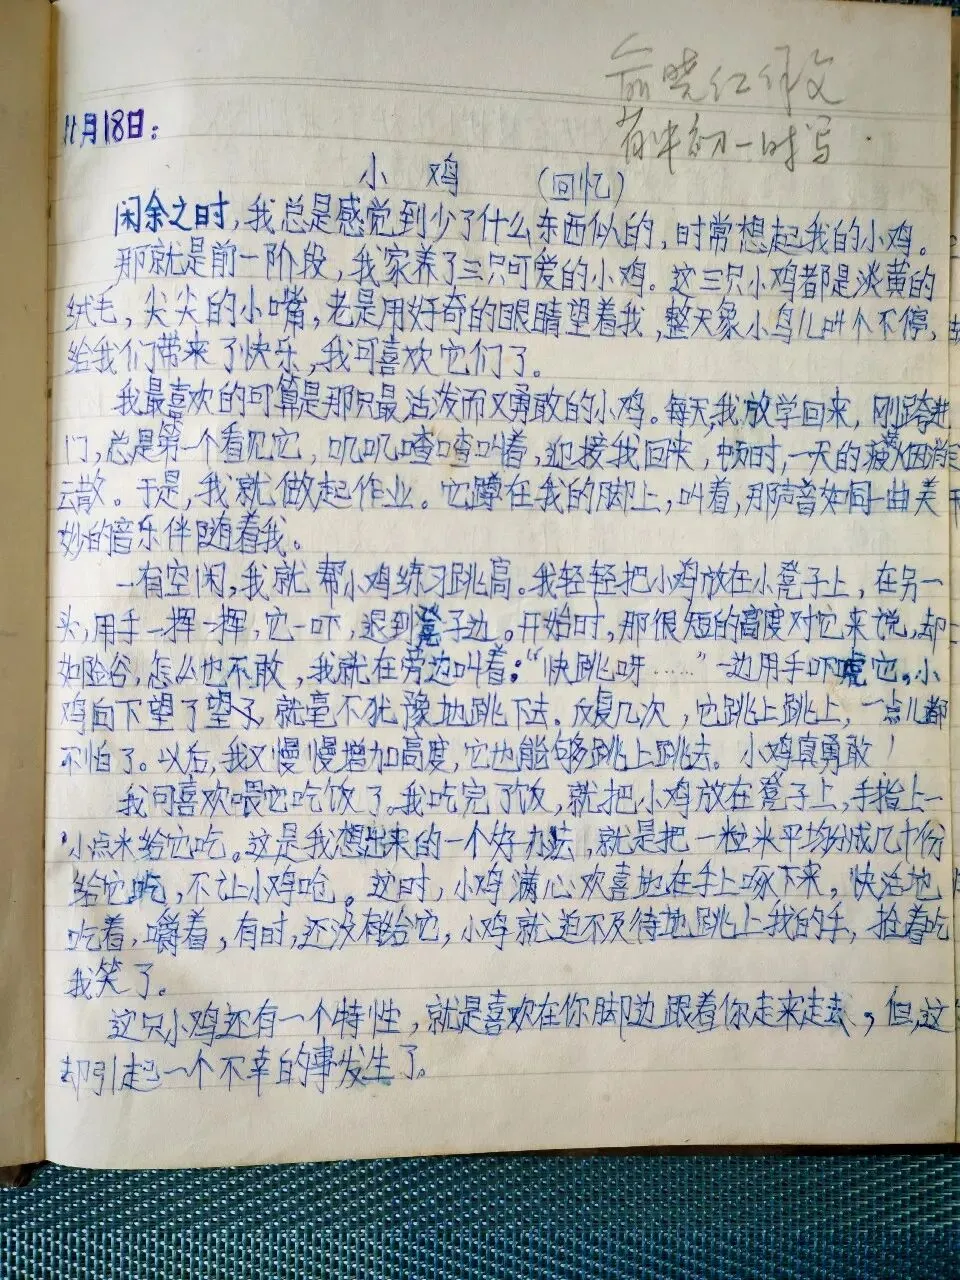 俞晓红作文
初一时写.
11月18日:
小 鸡 (回忆)
闲余之时,我总是感觉到少了什么东西似的,时常想起我的小鸡。
那就是前一阶段,我家养了三只可爱的小鸡。这三只小鸡都是淡黄的
绒毛,尖尖的小嘴,老是用好奇的眼睛望着我,整天象小鸟儿叫个不停,
给我们带来了快乐,我可喜欢它们了。
我最喜欢的可算是那只最活泼而又勇敢的小鸡。每天我放学回来,刚跨进
门,总是第一个看见它,叽叽喳喳叫着,迎接我回来,顿时,一天的疲劳烟消
云散。于是,我就做起作业。它蹲在我的脚上,叫着,那声音如同一曲美
妙的音乐伴随着我。
一有空闲,我就帮小鸡练习跳高。我轻轻把小鸡放在小凳子上,在另一
头,用手一挥一挥,它一吓,退到凳子边。开始时,那很短的高度对它来说,却
如险谷,怎么也不敢,我就在旁边叫着:“快跳呀……”一边用手吓唬它。小
鸡向下望了望,就毫不犹豫地跳下去。反复几次,它跳上跳上,一点儿都
不怕了。以后,我又慢慢增加高度,它也能够跳上跳去。小鸡真勇敢!
我可喜欢喂它吃饭了。我吃完了饭,就把小鸡放在凳子上,手指上一
小点米给它吃。这是我想出来的一个好办法,就是把一粒米平均分成几十份
给它吃,不让小鸡呛。这时,小鸡满心欢喜地在手上啄下来,快活地
吃着,嚼着,有时,还没有给它,小鸡就迫不及待地跳上我的手,抢着吃
我笑了。
这只小鸡还有一个特性,就是喜欢在你脚边跟着你走来走去,但,这
却引起一个不幸的事发生了。